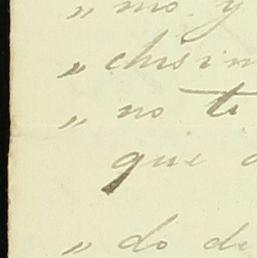 „ mo y
„ chisim
„ no ti
que
„ do de